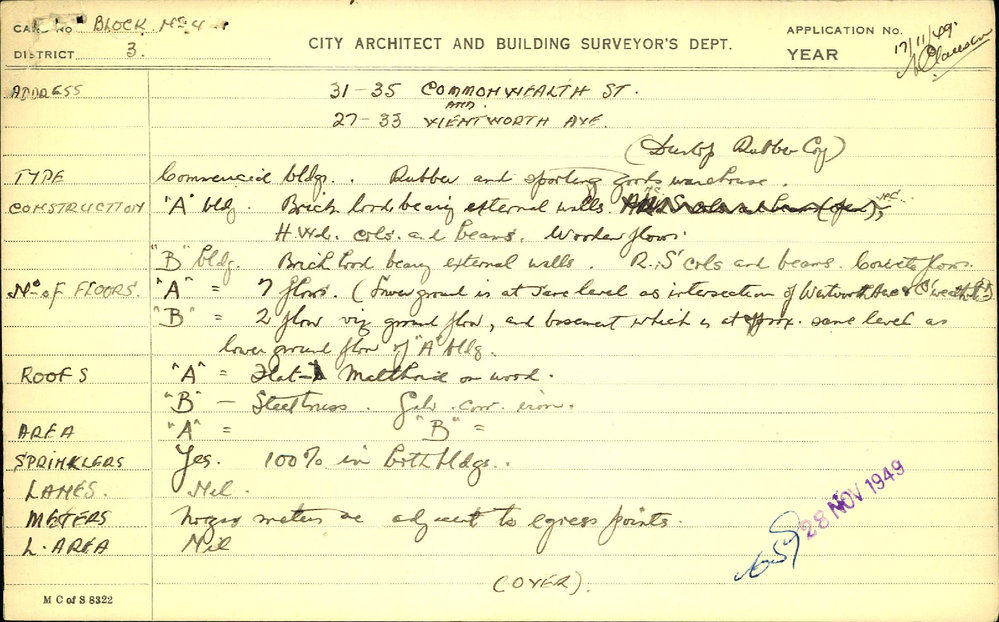 CARD No BLOCK No 4
DISTRICT 3.
CITY ARCHITECT AND BUILDING SURVEYOR'S DEPT.
APPLICATION No.
YEAR
17/11/49
ADDRESS 31-35 COMMONWEALTH ST.
AND
27-33 WENTWORTH AVE.
(Dunlop Rubber Coy)
TYPE Commercial bldg. Rubber and sporting goods warehouse.
CONSTRUCTION "A" bldg. Brick load bearing external walls.
H.Wd. cols. and beams. Wooden floors.
"B" bldg. Brick load bearing external walls. R.S cols and beams. Concrete floors.
No OF FLOORS. "A" = 7 floors. (Lower ground is at same level as intersection of Wentworth Ave &
"B" = 2 floor viz ground floor, and basement which is at approx. same level as
lower ground floor of "A" bldg.
ROOFS "A" = Flat - Malthoid on wood.
"B" - Steel truss. Galv. corr. iron.
AREA "A" = "B" =
SPRINKLERS Yes. 100% in both bldgs.
LANES. Nil.
METERS No gas meters are adjacent to egress points.
L. AREA Nil
28 NOV 1949
(OVER).
M C of S 8322